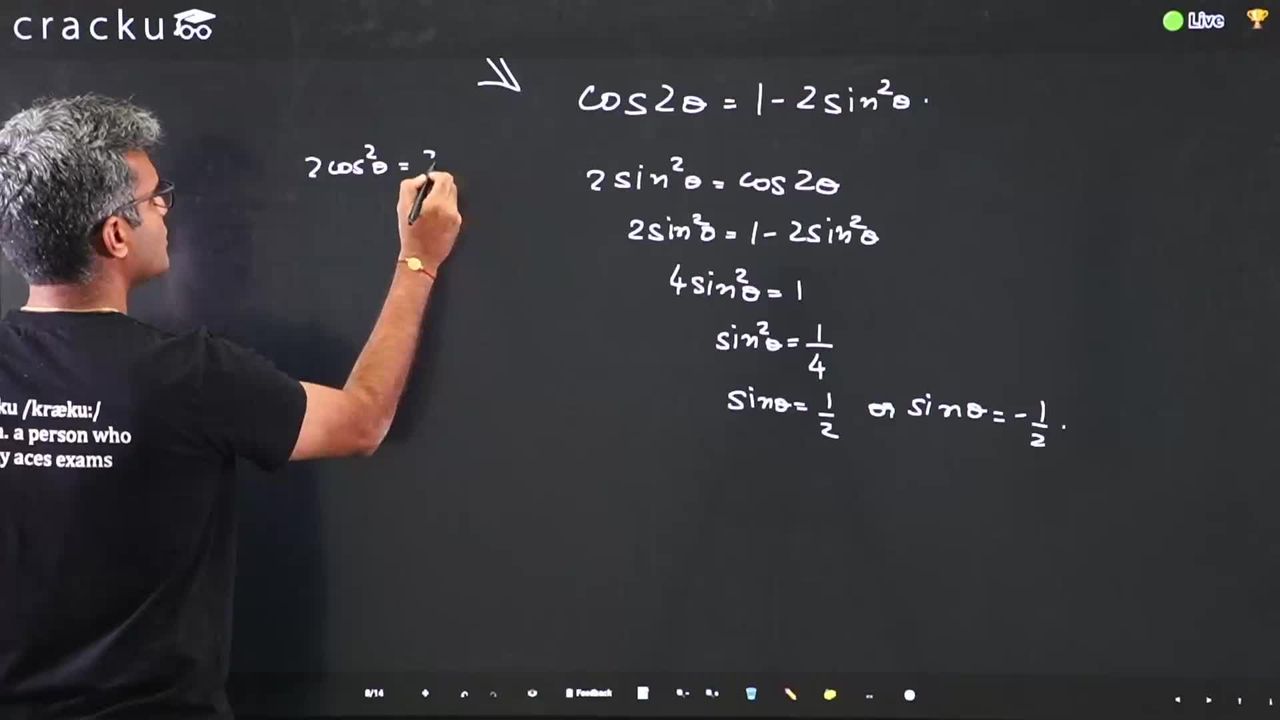 cracku
Live
cos2θ = 1 - 2sin²θ.
2cos²θ = 3
2sin²θ = cos2θ
2sin²θ = 1 - 2sin²θ
4sin²θ = 1
sin²θ = 1/4
sinθ = 1/2 or sinθ = -1/2.
ku /kræku:/
n. a person who
y aces exams
8/14
Feedback